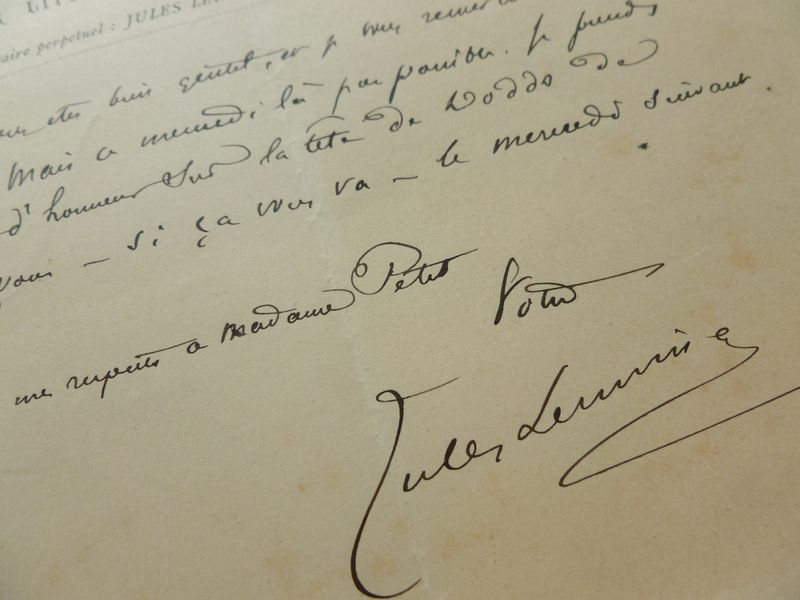 LIT
aire perpétuel : JULES LE
êtes bien gentil, et je vous remerc
Mais ce mercredi là pas possible. Je prends
d'honneur sur la tête de Dodds de
vous — si ça vous va — le mercredi suivant.
mes respects à madame Petit
Votre
Jules Lermina